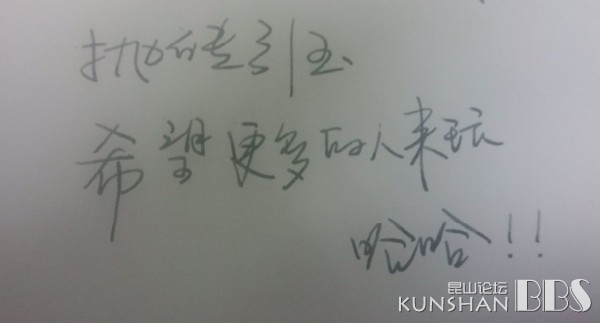 抛砖引玉
希望更多的人来玩
哈哈!!
昆山论坛
KUNSHAN BBS